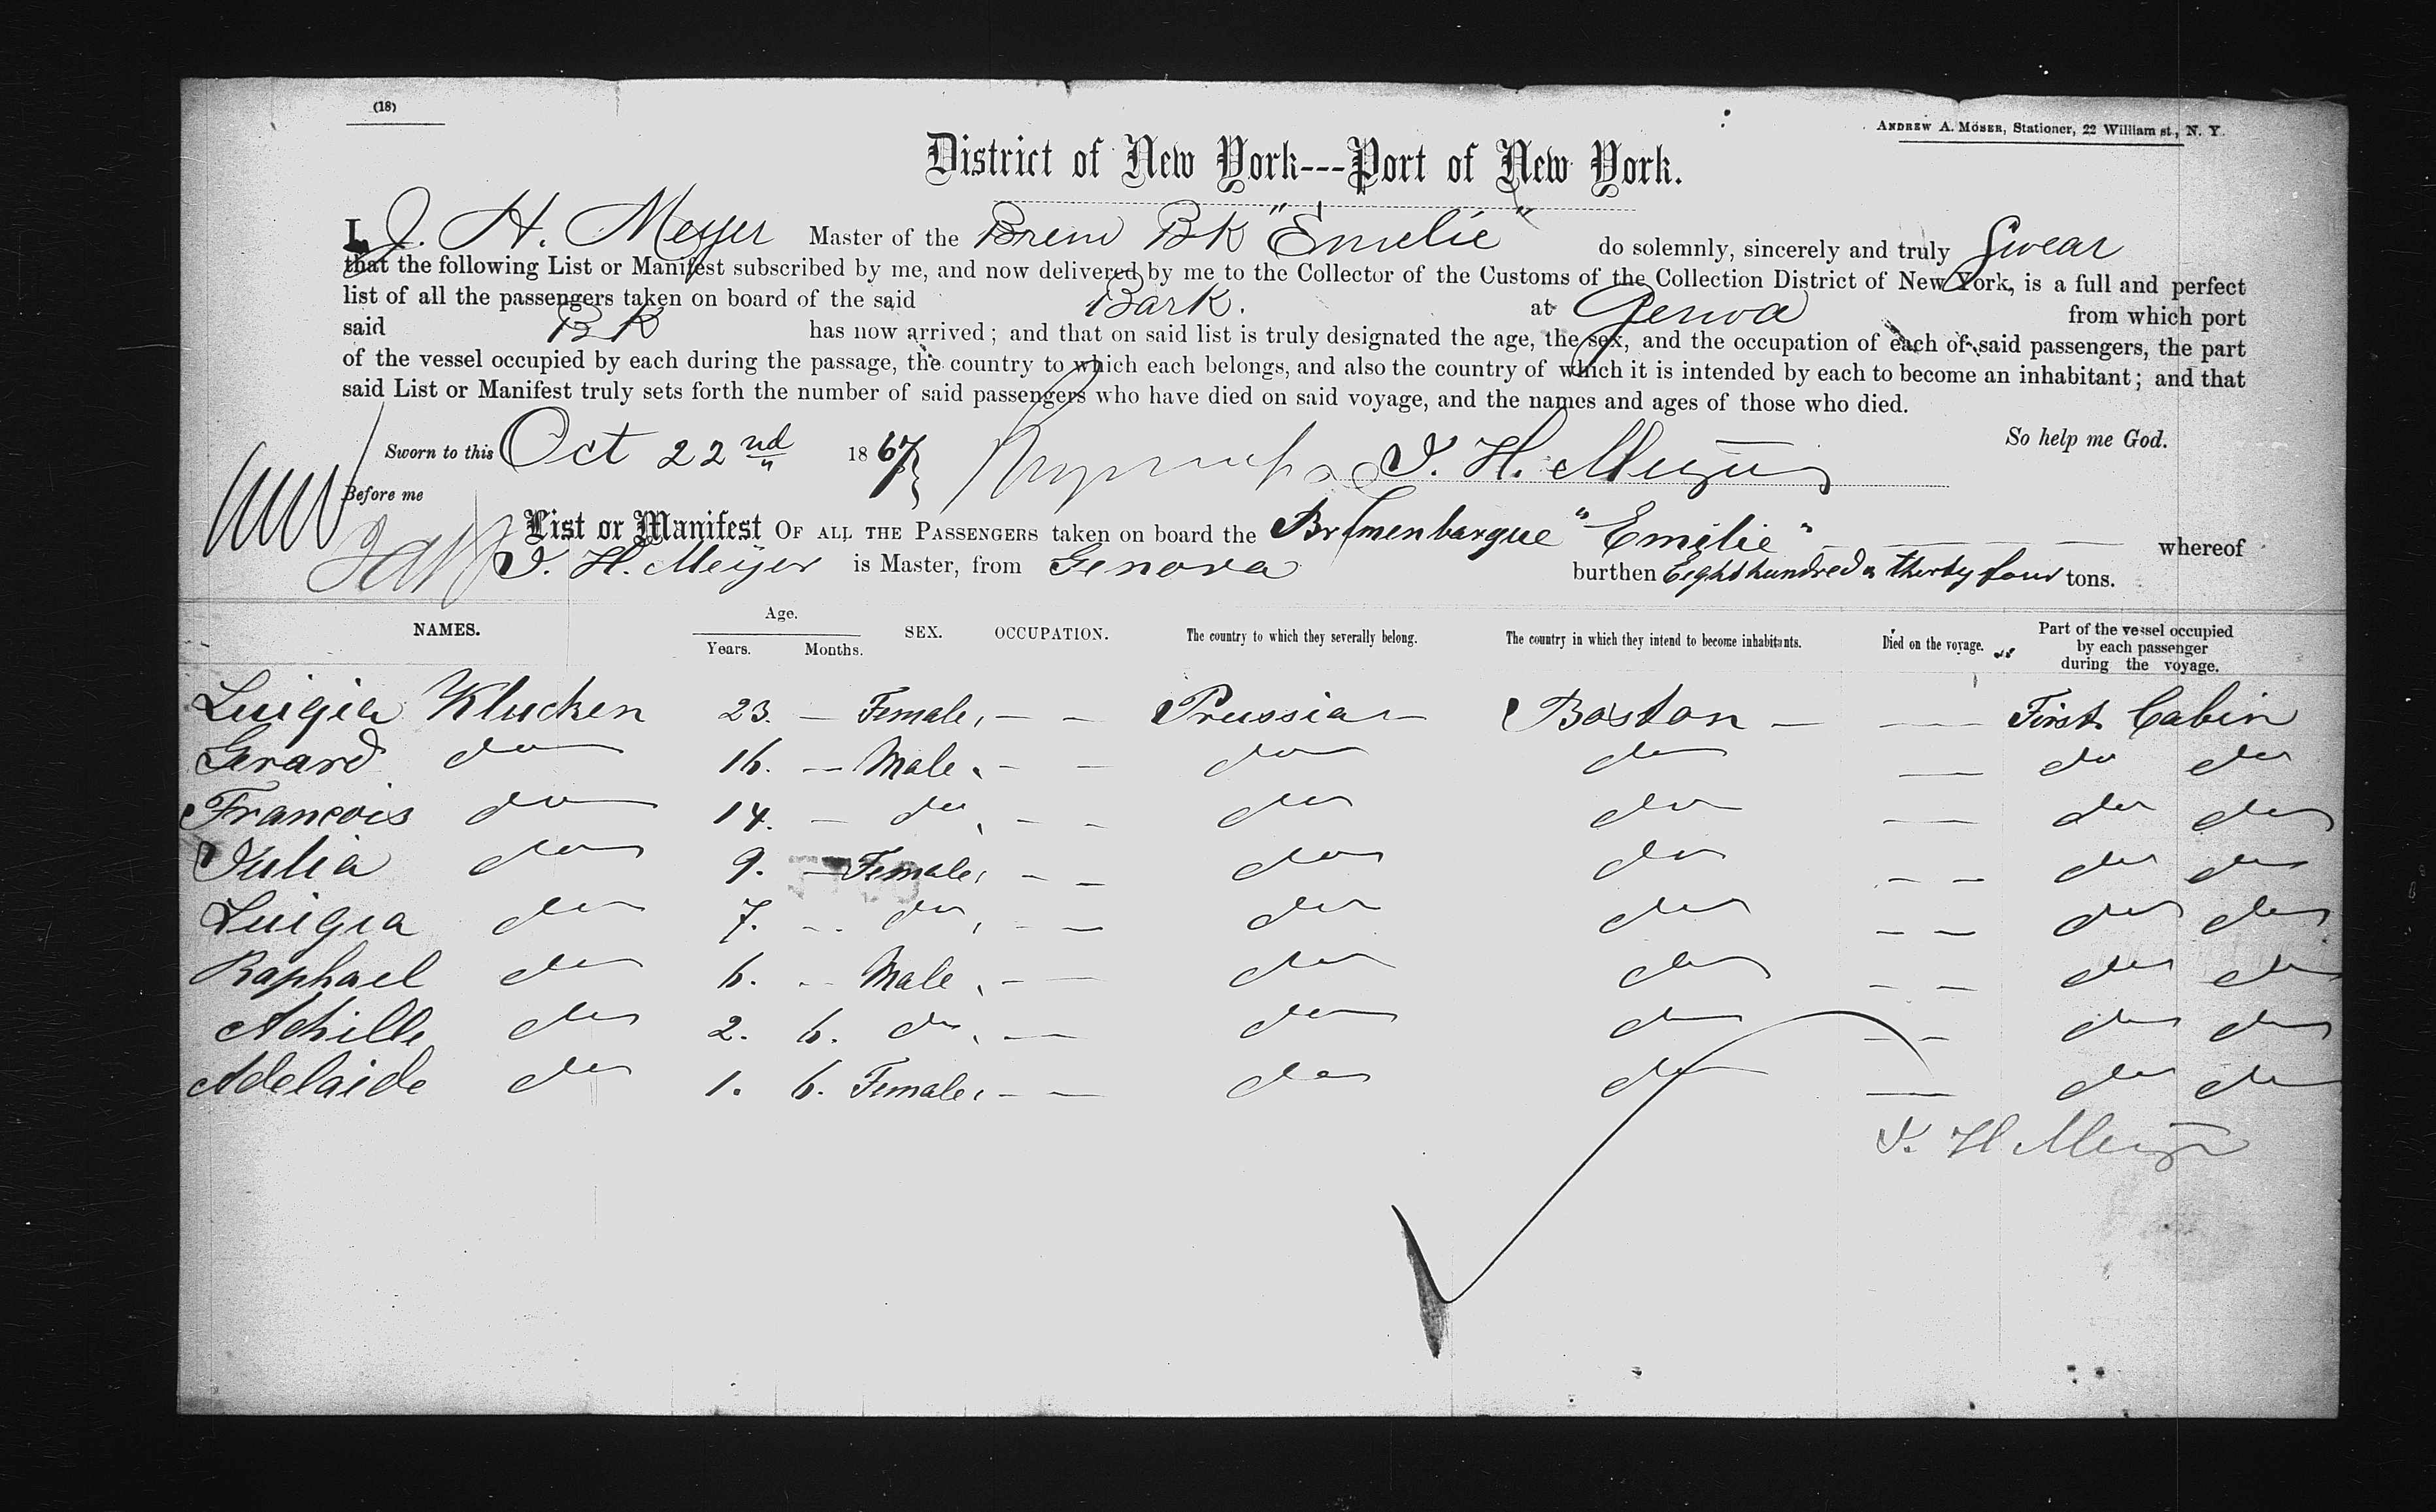 (18)
ANDREW A. MÖSER, Stationer, 22 William st., N. Y.
District of New York---Port of New York.
I, J. H. Meyer Master of the Brem Bk "Emelie" do solemnly, sincerely and truly Swear
that the following List or Manifest subscribed by me, and now delivered by me to the Collector of the Customs of the Collection District of New York, is a full and perfect
list of all the passengers taken on board of the said Bark. at Genoa from which port
said BK has now arrived; and that on said list is truly designated the age, the sex, and the occupation of each of said passengers, the part
of the vessel occupied by each during the passage, the country to which each belongs, and also the country of which it is intended by each to become an inhabitant; and that
said List or Manifest truly sets forth the number of said passengers who have died on said voyage, and the names and ages of those who died.
So help me God.
Sworn to this Oct 22nd 1867 J. H. Meyer
Before me
List or Manifest OF ALL THE PASSENGERS taken on board the Bremen barque "Emilie" whereof
J. H. Meijer is Master, from Genova burthen Eight hundred & thirty four tons.
NAMES. Age. Years. Months. SEX. OCCUPATION. The country to which they severally belong. The country in which they intend to become inhabitants. Died on the voyage. Part of the vessel occupied by each passenger during the voyage.
Luigia Klucken 23. — Female, — — Prussia — Boston — — First Cabin
Gerard do 16. — Male, — — do do — do do
Francois do 14. — do, — — do do — do do
Julia do 9. — Female, — — do do — — do do
Luigia do 7. — do, — — do do — — do do
Raphael do 6. — Male, — — do do — — do do
Achille do 2. 6. do, — do do — — do do
Adelaide do 1. 6. Female, — — do do — do do
J. H Meyer